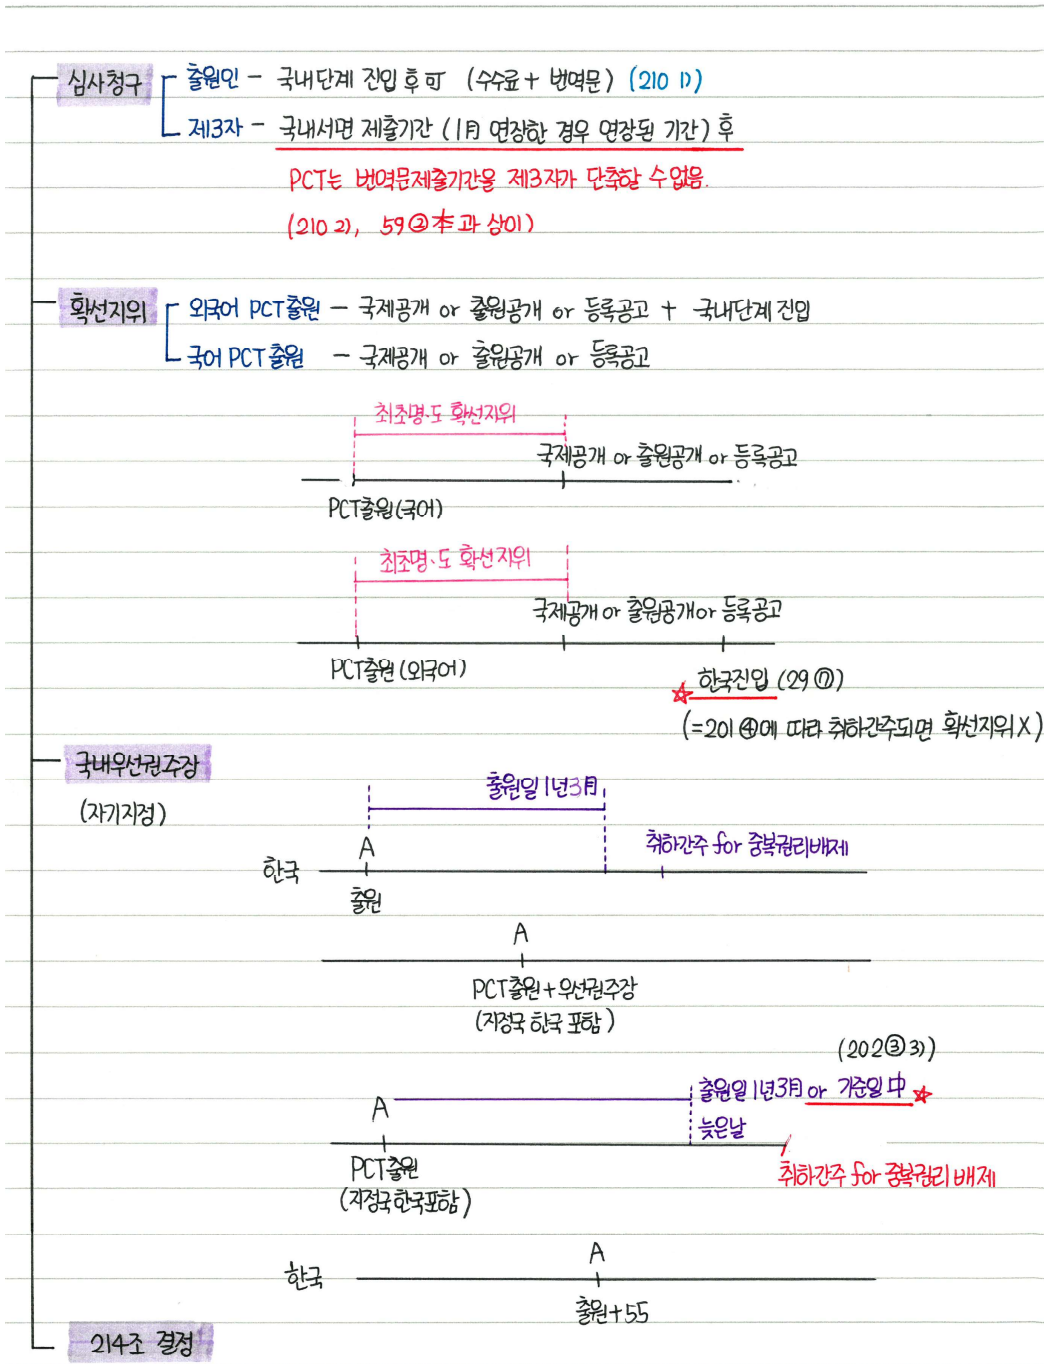 심사청구
출원인 - 국내단계 진입 후 可 (수수료 + 번역문) (210 1))
제3자 - 국내서면 제출기간 (1月 연장한 경우 연장된 기간) 후
PCT는 번역문제출기간을 제3자가 단축할 수 없음.
(210 2), 59②本과 상이)
확선지위
외국어 PCT출원 - 국제공개 or 출원공개 or 등록공고 + 국내단계 진입
국어 PCT 출원 - 국제공개 or 출원공개 or 등록공고
최초명·도 확선지위
국제공개 or 출원공개 or 등록공고
PCT출원(국어)
최초명·도 확선지위
국제공개 or 출원공개 or 등록공고
PCT출원 (외국어)
☆ 한국진입 (29⑦)
(=201④에 따라 취하간주되면 확선지위 X)
국내우선권주장
(자기지정)
출원일 1년3月
취하간주 for 중복권리배제
A
한국
출원
A
PCT출원+우선권주장
(지정국 한국 포함)
(202③3))
출원일 1년3月 or 기준일 中 ☆
늦은날
A
PCT출원
(지정국한국포함)
취하간주 for 중복권리 배제
A
한국
출원+55
214조 결정